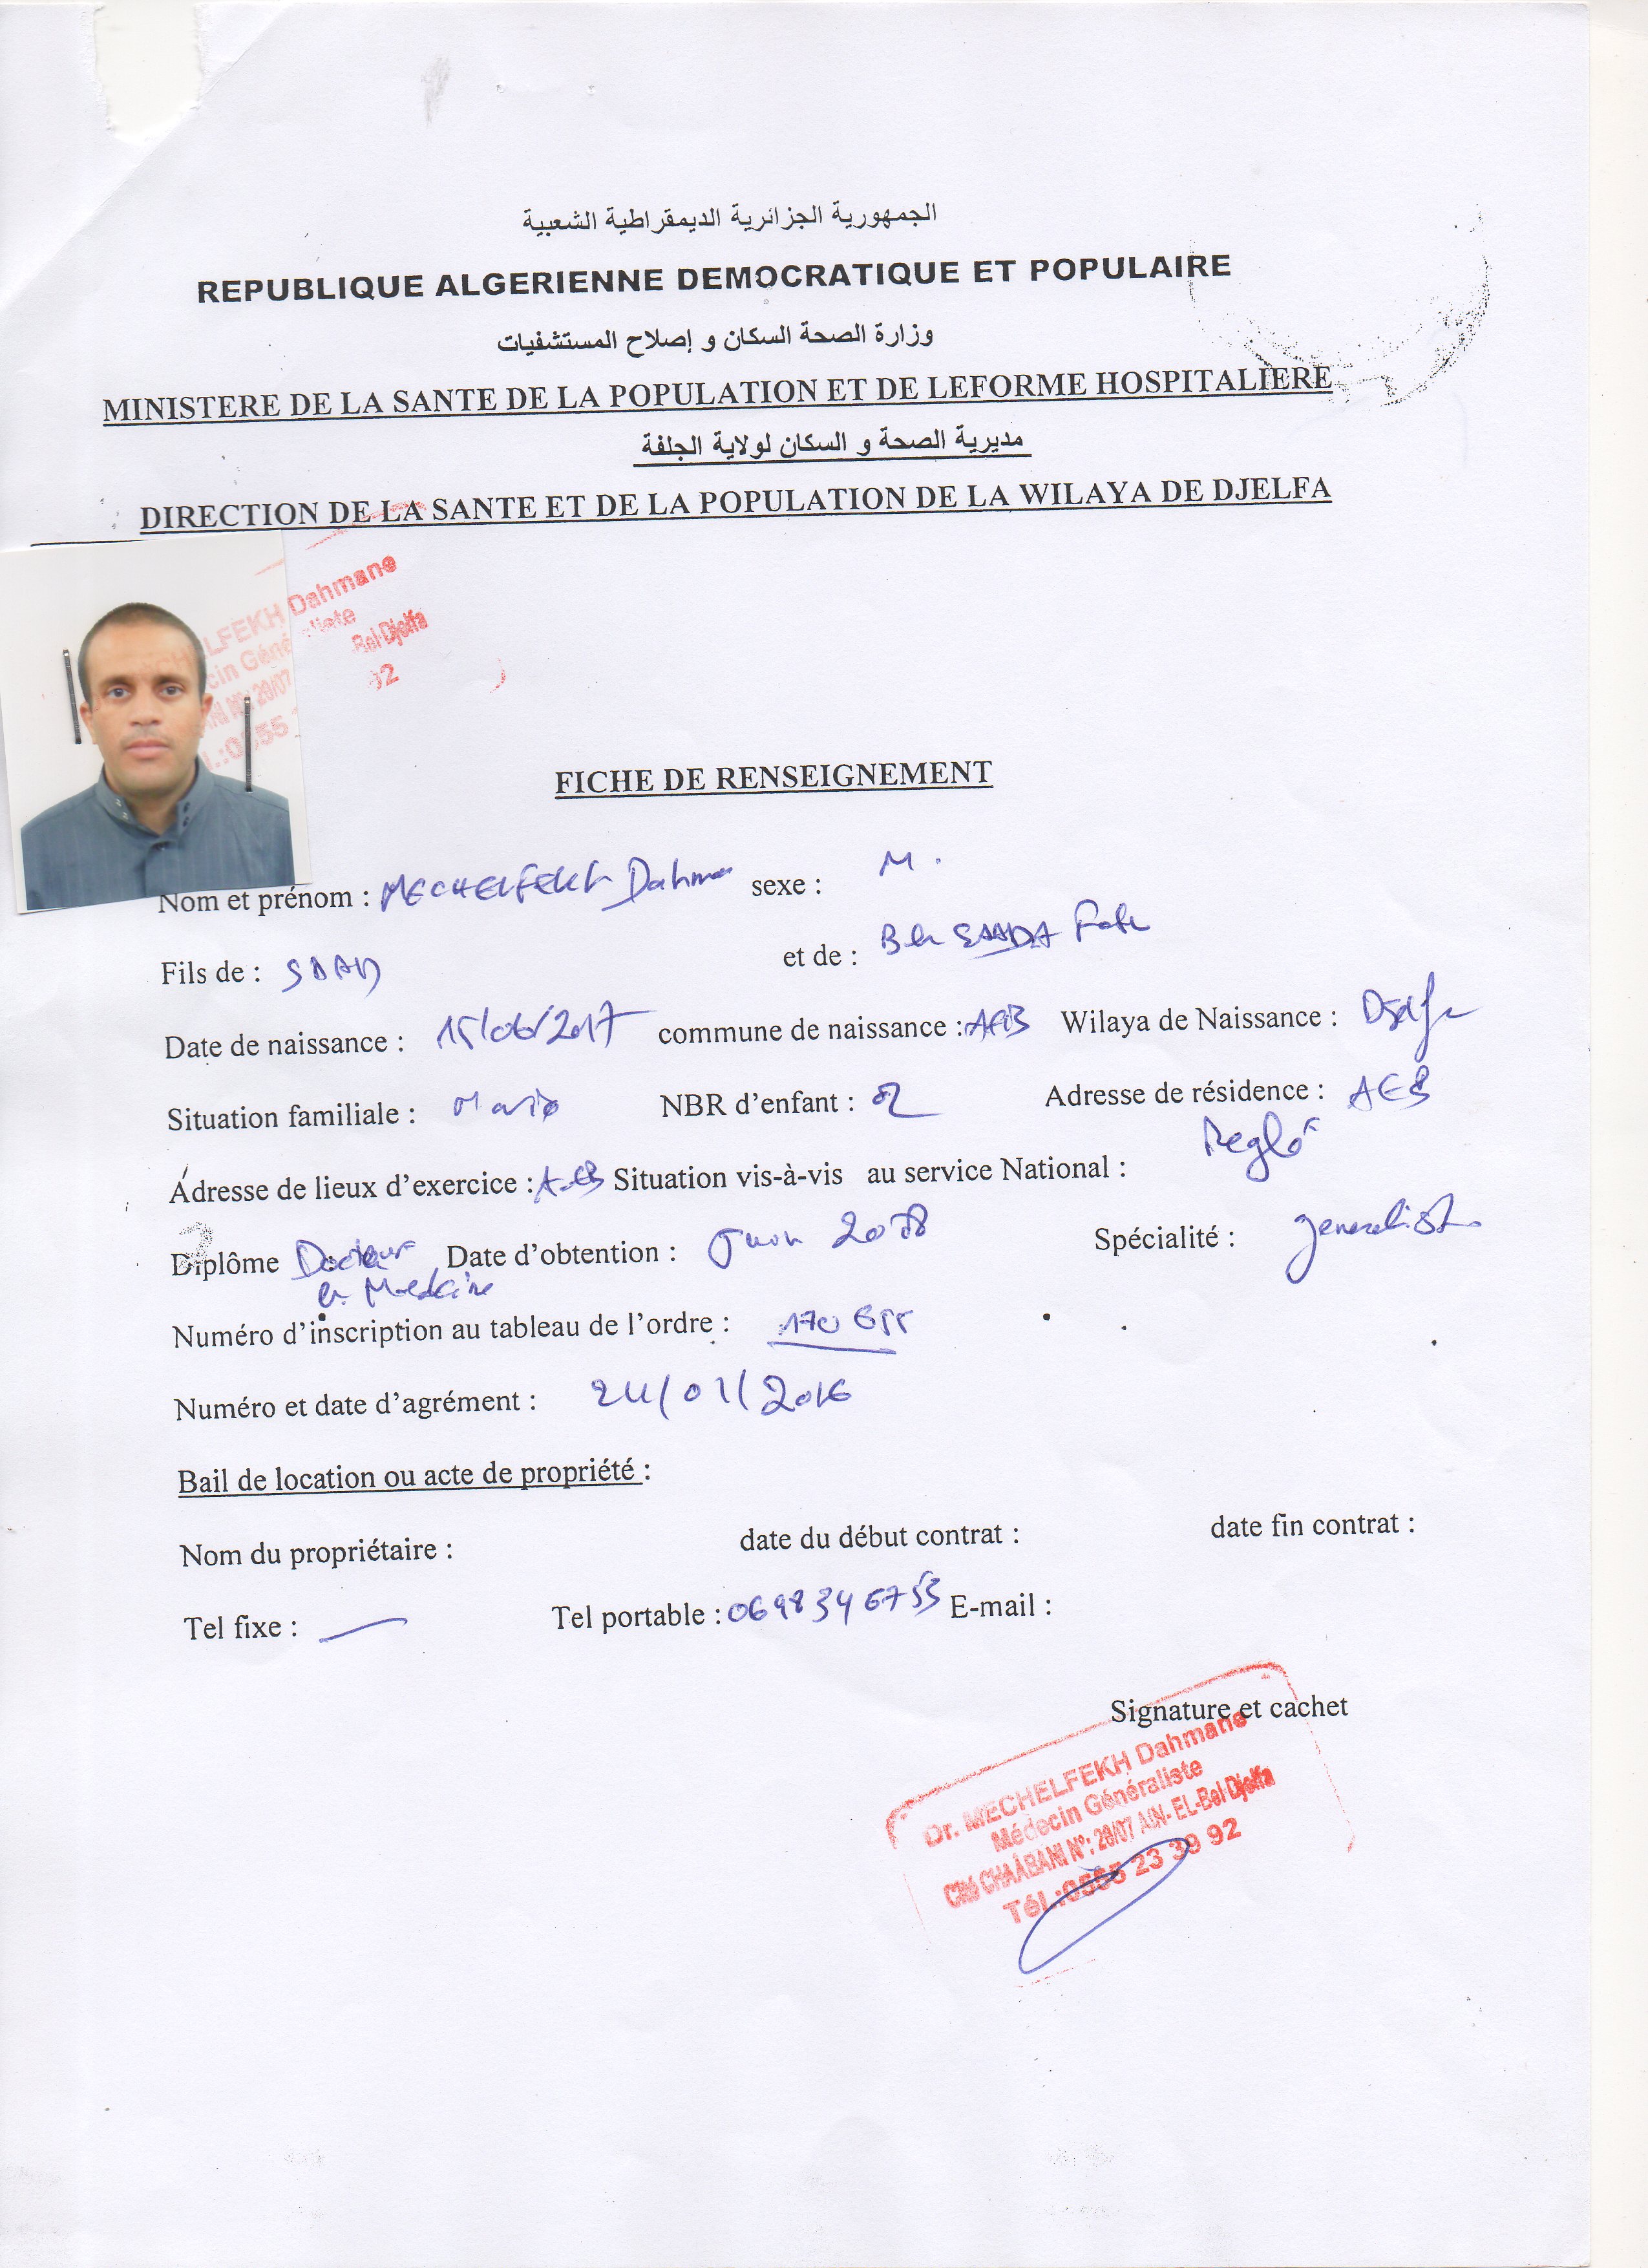 الجمهورية الجزائرية الديمقراطية الشعبية
REPUBLIQUE ALGERIENNE DEMOCRATIQUE ET POPULAIRE
وزارة الصحة السكان و إصلاح المستشفيات
MINISTERE DE LA SANTE DE LA POPULATION ET DE LEFORME HOSPITALIERE
مديرية الصحة و السكان لولاية الجلفة
DIRECTION DE LA SANTE ET DE LA POPULATION DE LA WILAYA DE DJELFA
LFEKH Dahmane
cin Géné liste
Bel Djelfa
92
FICHE DE RENSEIGNEMENT
Nom et prénom : MECHELFEKH sexe : M.
Fils de : et de : Ben SAADA
Date de naissance : 15/06/2017 commune de naissance : AEB Wilaya de Naissance :
Situation familiale : NBR d'enfant : 02 Adresse de résidence : AEB
Adresse de lieux d'exercice : AEB Situation vis-à-vis au service National :
Diplôme Docteur Date d'obtention : Juin Spécialité :
Numéro d'inscription au tableau de l'ordre :
Numéro et date d'agrément : 24/01/2016
Bail de location ou acte de propriété :
Nom du propriétaire : date du début contrat : date fin contrat :
Tel fixe : — Tel portable : 0698346753 E-mail :
Signature et cachet
Dr. MECHELFEKH Dahmane
Médecin Généraliste
Cité CHAÀBANI N°: 28/07 AIN- EL-Bel Djelfa
Tél.:0555 23 39 92